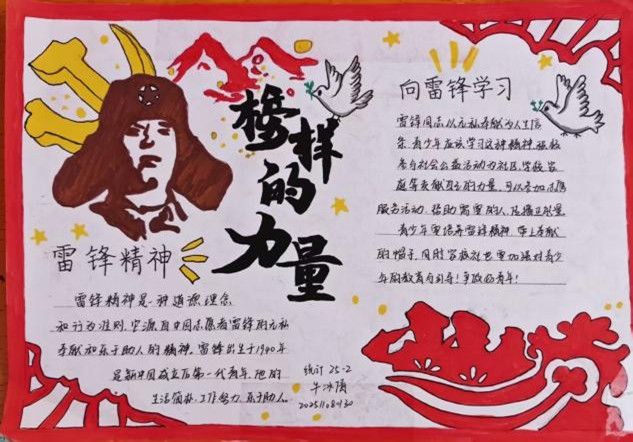 榜样的力量
向雷锋学习
雷锋同志以无私奉献为人生信
条,青少年应该学习这种精神,积极
参与社会公益活动,为社区、学校、家
庭等贡献自己的力量,可以参加志愿
服务活动,帮助需要的人,传播正能量,
青少年要培养雷锋精神,带上奉献
的帽子,同时家校社也要加强对青少
年的教育与引导!争做好青年!
雷锋精神
雷锋精神是一种道德理念
和行为准则,它源自中国志愿者雷锋的无私
奉献和乐于助人的精神。雷锋出生于1940年
是新中国成立后第一代青年,他的
生活俭朴,工作努力,乐于助人。
统计25-2
牛冰倩